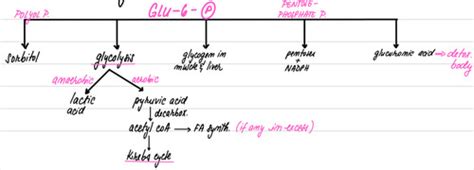 POLYOL P.
GLU-6-P
PENTOSE-
PHOSPHATE P.
sorbitol
glycolysis
glycogen in
muscle & liver
pentoses
+
NADPH
glucuronic acid → detox.
body
anaerobic
aerobic
lactic
acid
pyruvic acid
decarbox.
acetyl CoA → FA synth. (if any in excess)
Krebs cycle